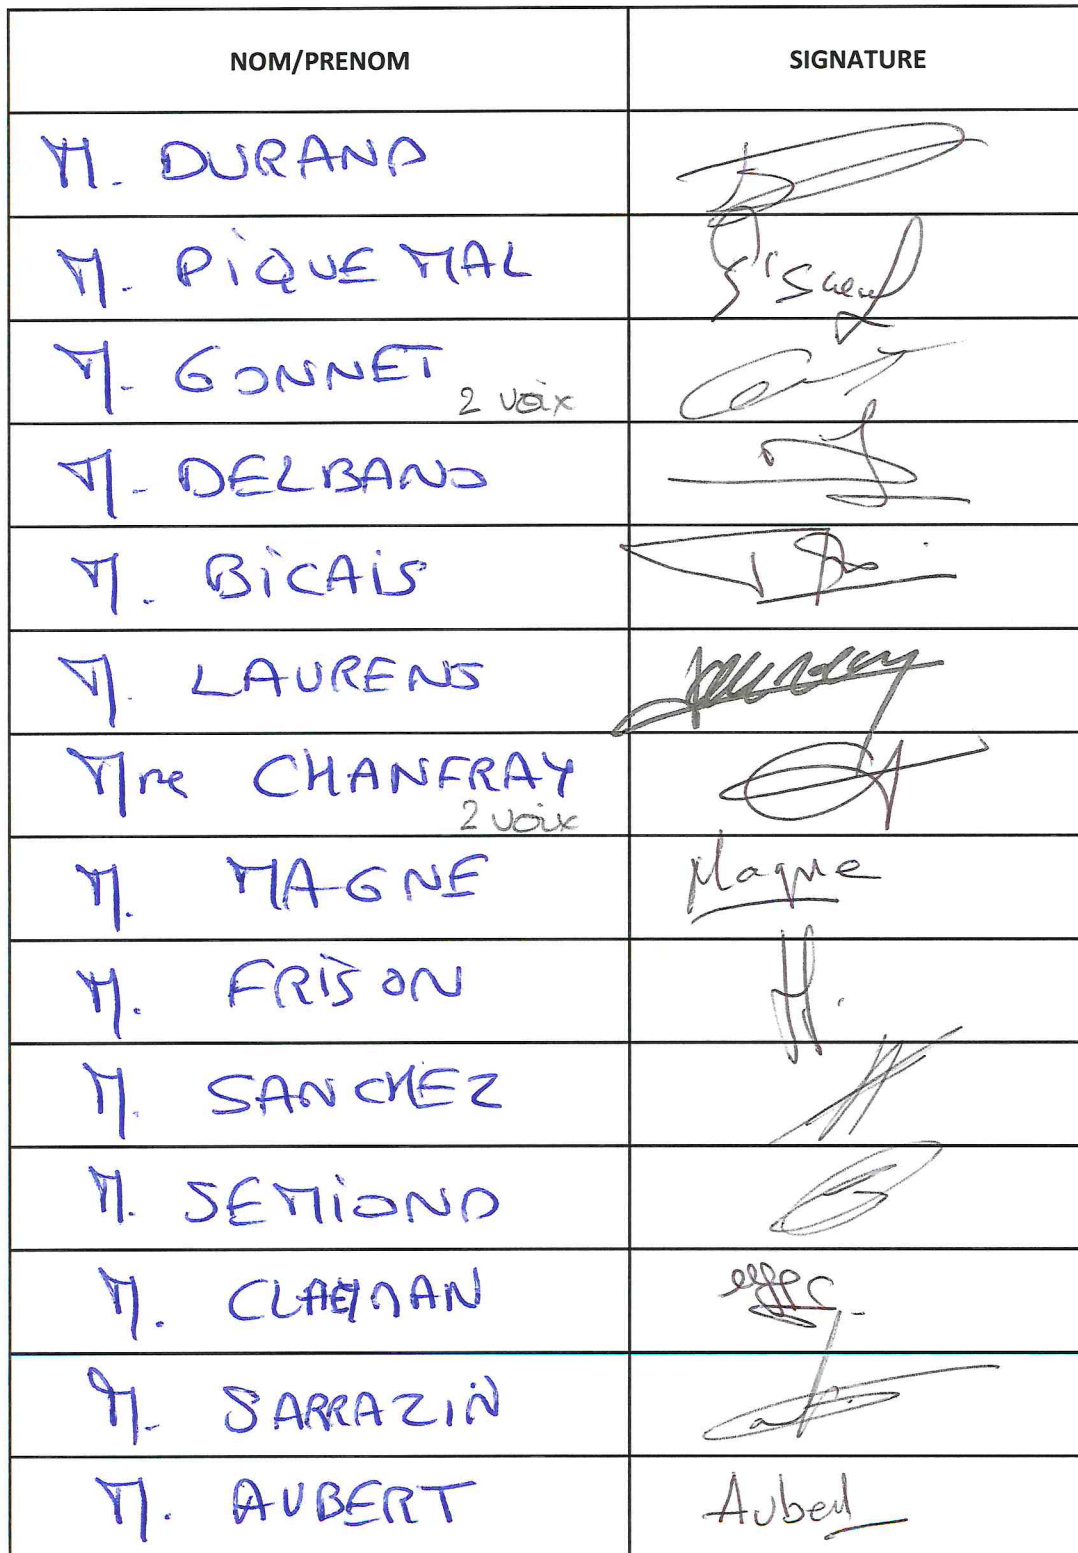 NOM/PRENOM SIGNATURE
M. DURAND
M. PIQUEMAL
M. GONNET
2 voix
M. DELBANO
M. BICAIS
M. LAURENS
Mme CHANFRAY
2 voix
M. MAGNE Magne
M. FRISON
M. SANCHEZ
M. SEMIOND
M.
M. SARRAZIN
M. AUBERT Aubert